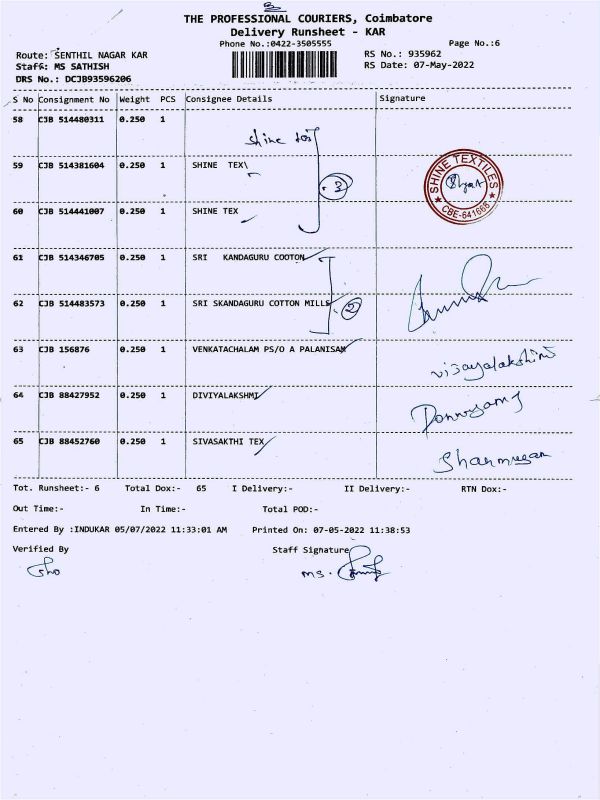 THE PROFESSIONAL COURIERS, Coimbatore
Delivery Runsheet - KAR
Phone No.:0422-3505555
Page No.:6
Route: SENTHIL NAGAR KAR
RS No.: 935962
Staff: MS SATHISH
RS Date: 07-May-2022
DRS No.: DCJB93596206
S No Consignment No Weight PCS Consignee Details Signature
58 CJB 514480311 0.250 1
Shine tex
59 CJB 514381604 0.250 1 SHINE TEX\
3
SHINE TEXTILES
CBE-641665
60 CJB 514441007 0.250 1 SHINE TEX
61 CJB 514346705 0.250 1 SRI KANDAGURU COOTON
62 CJB 514483573 0.250 1 SRI SKANDAGURU COTTON MILLS
2
63 CJB 156876 0.250 1 VENKATACHALAM PS/O A PALANISAM
vijayalakshimi
64 CJB 88427952 0.250 1 DIVIYALAKSHMI
65 CJB 88452760 0.250 1 SIVASAKTHI TEX
Shanmugan
Tot. Runsheet:- 6 Total Dox:- 65 I Delivery:- II Delivery:- RTN Dox:-
Out Time:- In Time:- Total POD:-
Entered By :INDUKAR 05/07/2022 11:33:01 AM Printed On: 07-05-2022 11:38:53
Verified By Staff Signature